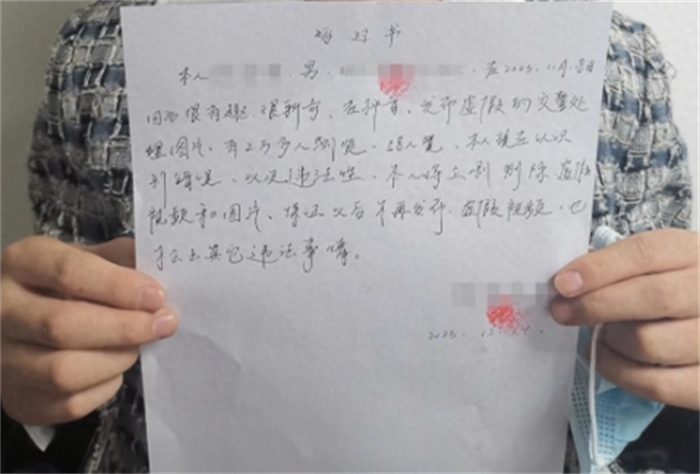 悔过书
本人 男, 在2023.11月.8日
因为很有趣,很新奇,在抖音,发布虚假的交警处
理图片,有2万多人浏览, 人赞,本人现在认识
到错误,以及违法性,本人将立刻删除虚假
视频和图片,保证以后不再发布,虚假视频,也
不会去其它违法事情。
2023. 12.